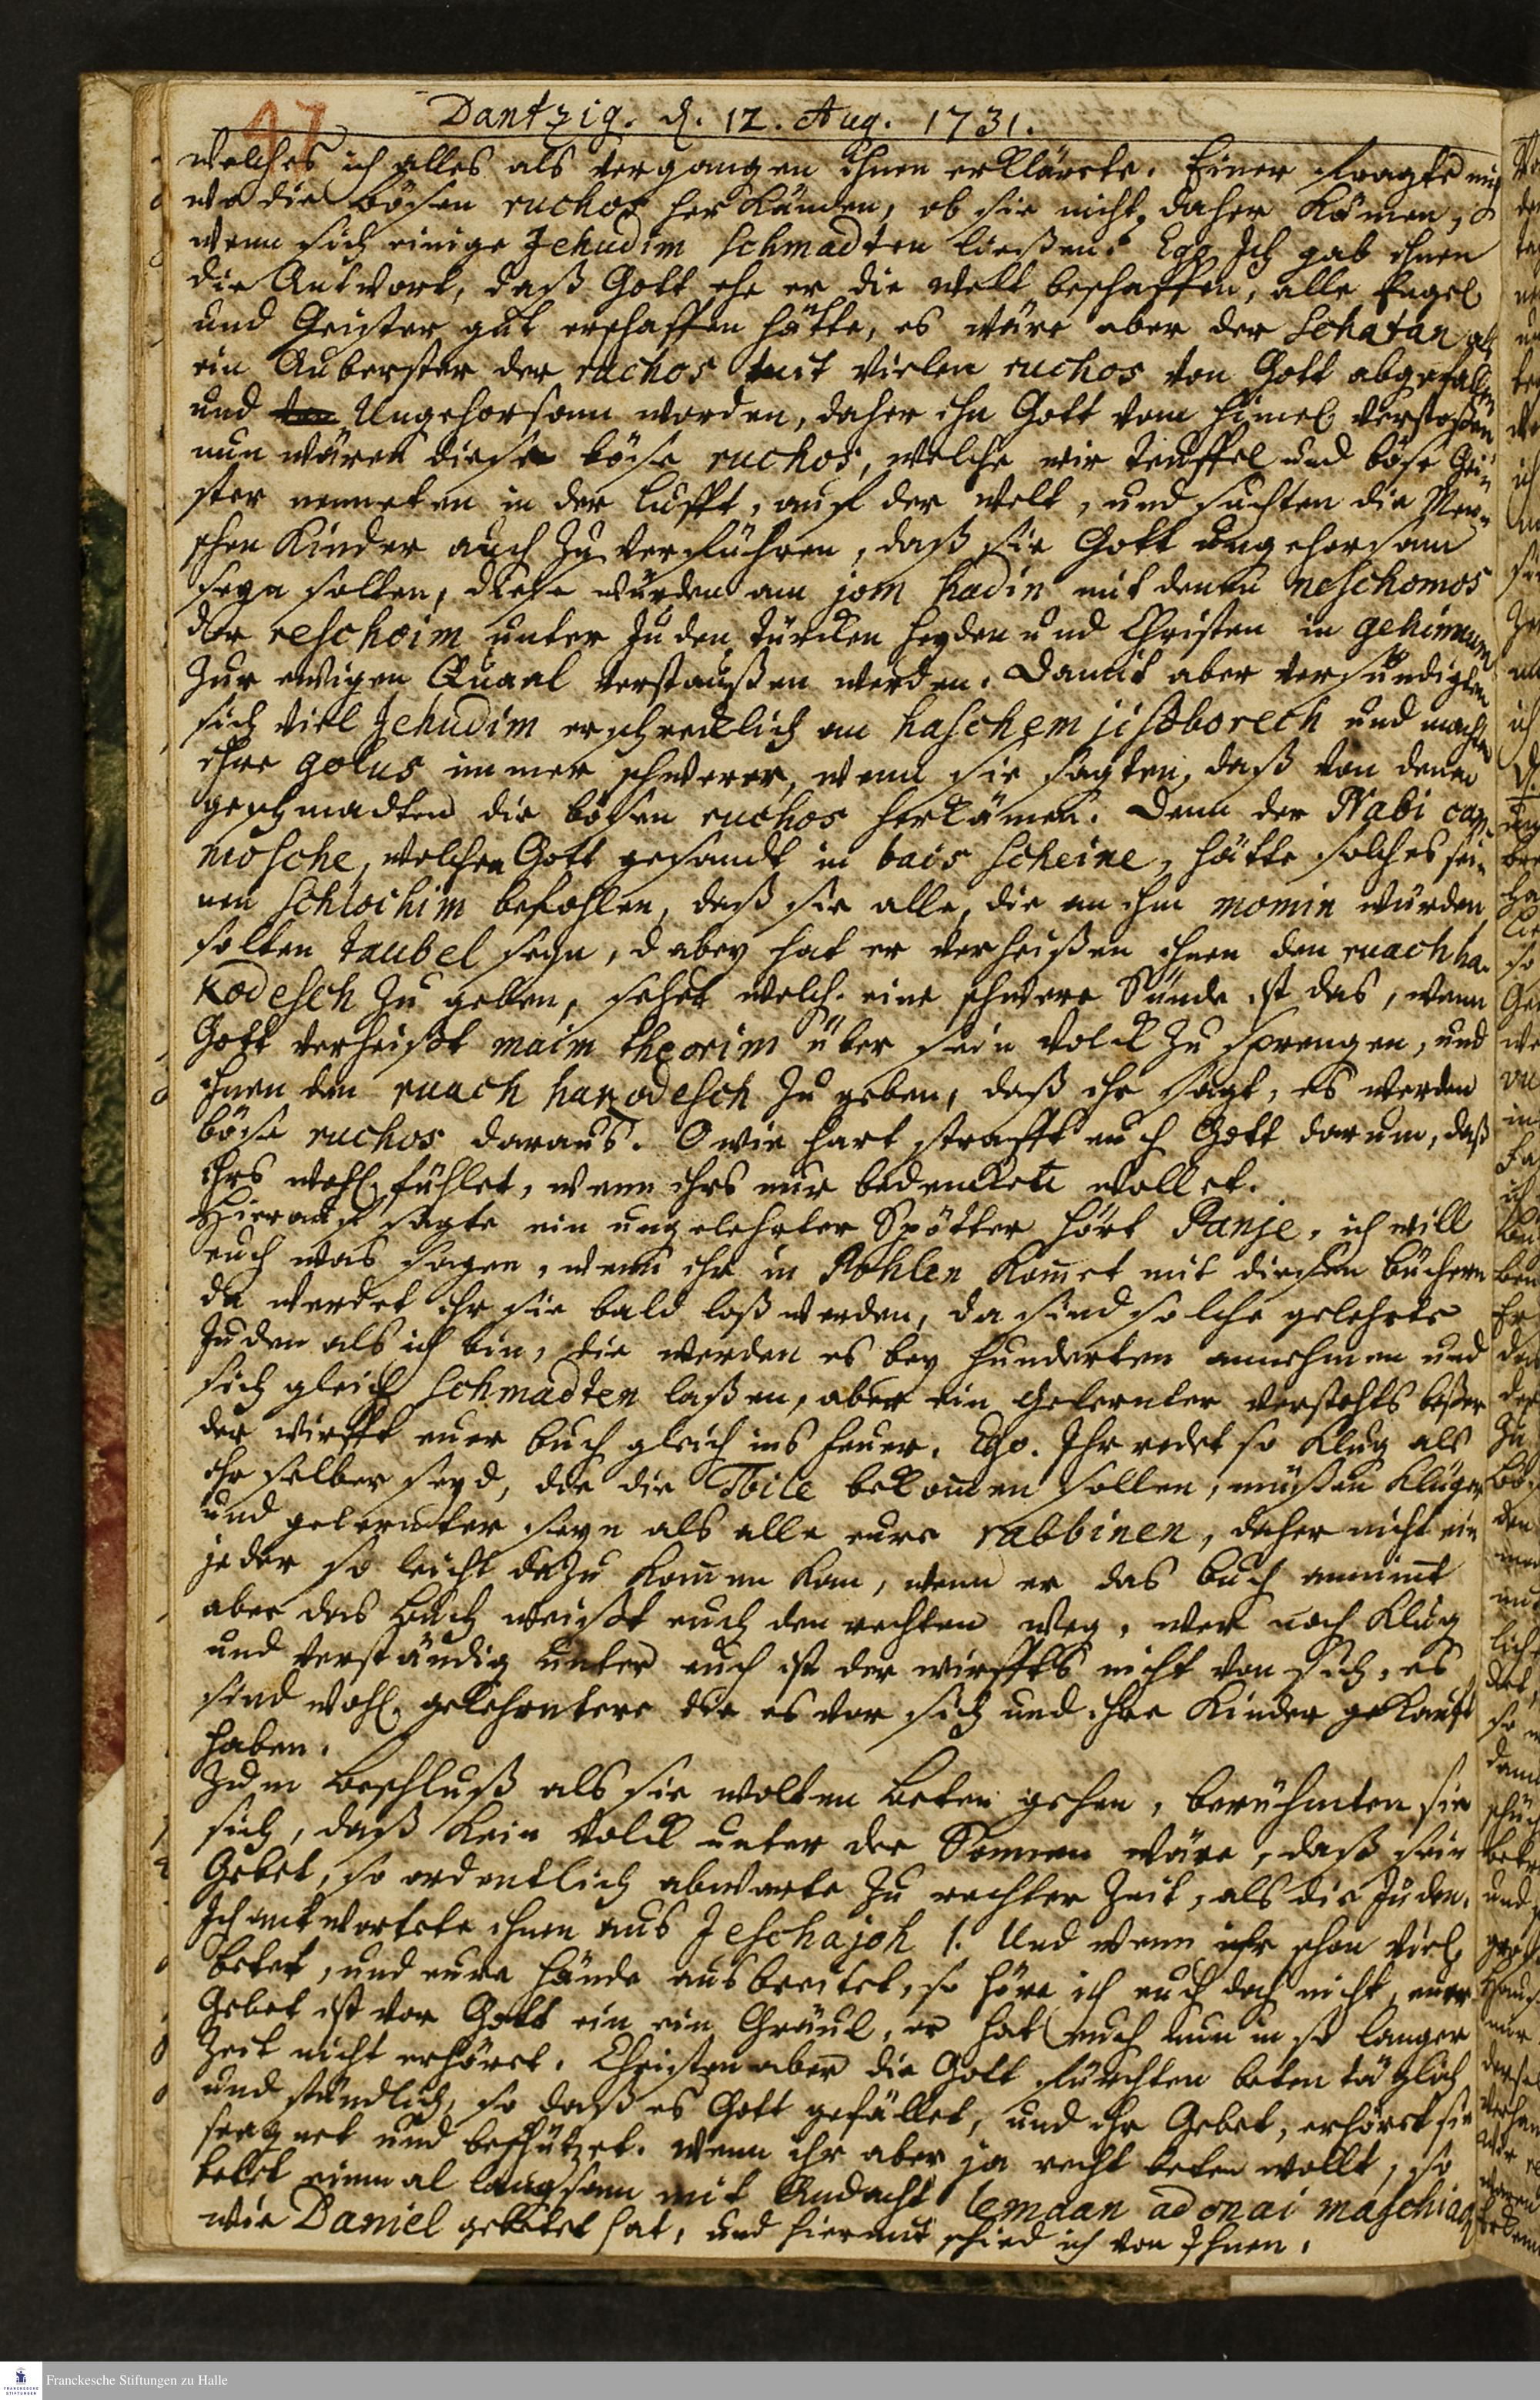 97
Dantzig. d. 12. Aug. 1731.
welches ich alles als vergangen ihnen erklärete. Einer fragte mich
wo die bösen ruchos her kämen, ob sie nicht daher kämen,
wenn sich einige Jehudim schmadten ließen. Ego Ich gab ihnen
die Antwort, daß Gott ehe er die Welt beschaffen, alle Engel
und Geister gut erschaffen hätte, es wäre aber der Schatan als
ein Auberster der ruchos mit vielen ruchos von Gott abgefallen
und Ungehorsam worden, daher ihn Gott vom Himel verstoßen
nun wären diese böse ruchos, welche wir Teuffel und böse Gei-
ster nenneten in der Lufft, auf der Welt, und suchten die Men-
schen Kinder auch zu verführen, daß sie Gott ungehorsam
seyn solten, diese würden am jom hadin mit denen neschomos
der reschoim unter Juden, Türcken Heyden und Christen in gehinnum
zur ewigen Quaal verstoußen werden. Damit aber versündigten
sich viel Jehudim erschrecklich an haschem jisborech und machten
ihre golus immer schwerer, wenn sie sagten, daß von denen
geschmadten die bösen ruchos herkämen. Denn der Nabi
mosche, welchen Gott gesandt in bais scheine, hätte solches sei-
nen schloihim befohlen, daß sie alle, die an ihn momin würden
solten taubel seyn, dabey hat er verheißen ihnen den ruach ha-
kodesch zu geben, sehet welch eine schwere Sünde ist das, wenn
Gott verheißt maim theorim über sein Volck zu sprengen, und
ihnen den ruach hakodesch zu geben, daß ihr sagt, es werden
böse ruchos daraus. O wie hart strafft euch Gott darum, daß
ihrs wohl fühlet, wenn ihrs nur bedencken wollet.
Hierauf sagte ein ungelehrter Spötter hört Panje, ich will
euch was sagen, wenn ihr in Pohlen komet mit diesen Büchern
da werdet ihr sie bald loß werden, da sind solche gelehrte
Juden als ich bin, die werden es bey Hunderten annehmen und
sich gleich schmadten laßen, aber ein Gelernter verstehts beßer
der wirfft euer Buch gleich ins Feuer. Ego. Ihr redet so klug als
ihr selber seyd, die die Tbile bekomen sollen, müßen klüger
und gelernter seyn als alle eure rabbinen, daher nicht ein
jeder so leicht dazu komen kan, wenn er das Buch annimt
aber das Buch weißt euch den rechten Weg, wer noch klug
und verständig unter euch ist der wirffts nicht von sich, es
sind wohl gelehrntere die es vor sich und ihre Kinder gekauft
haben.
Zum Beschluß als sie wolten beten gehen, berühmten sie
sich, daß kein Volck unter der Sonnen wäre, daß sein
Gebet, so ordentlich abwarte zu rechter Zeit, als die Juden.
Ich antwortete ihnen aus Jeschajoh 1. Und wenn ihr schon viel
betet, und eure Hände ausbreitet, so höre ich euch doch nicht, euer
Gebet ist vor Gott ein ein Gräul, er hat euch nun in so langer
Zeit nicht erhöret. Christen aber die Gott fürchten beten täglich
und stündlich, so daß es Gott gefället, und ihr Gebet, erhöret sie
seegnet und beschützet. Wenn ihr aber ja recht beten wollt, so
betet einmal langsam mit Andacht lemaan adonai maschiach
wie Daniel gebetet hat, und hiermit schied ich von Ihnen.
Franckesche Stiftungen zu Halle